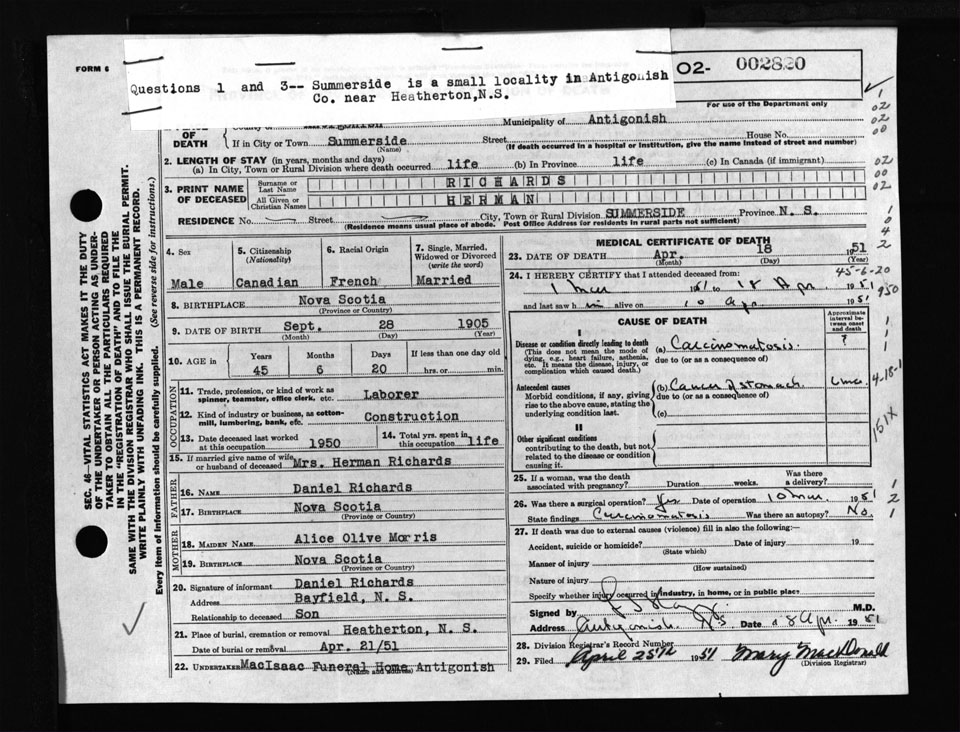 FORM 6
Questions 1 and 3-- Summerside is a small locality in Antigonish
Co. near Heatherton,N.S.
02- 002820
For use of the Department only
DEATH
Municipality of Antigonish
If in City or Town Summerside Street House No.
(Name) (If death occurred in a hospital or institution, give the name instead of street and number)
2. LENGTH OF STAY (in years, months and days)
(a) In City, Town or Rural Division where death occurred life (b) In Province life (c) In Canada (if immigrant)
3. PRINT NAME OF DECEASED
Surname or Last Name RICHARDS
All Given or Christian Names HERMAN
RESIDENCE No. Street City, Town or Rural Division SUMMERSIDE Province N. S.
(Residence means usual place of abode. Post Office Address for residents in rural parts not sufficient)
4. Sex
Male
5. Citizenship
(Nationality)
Canadian
6. Racial Origin
French
7. Single, Married,
Widowed or Divorced
(write the word)
Married
8. BIRTHPLACE Nova Scotia
(Province or Country)
9. DATE OF BIRTH Sept. 28 1905
(Month) (Day) (Year)
10. AGE in Years Months Days If less than one day old
45 6 20 hrs. or min.
OCCUPATION
11. Trade, profession, or kind of work as
spinner, teamster, office clerk, etc. Laborer
12. Kind of industry or business, as cotton-
mill, lumbering, bank, etc. Construction
13. Date deceased last worked
at this occupation 1950
14. Total yrs. spent in
this occupation life
15. If married give name of wife
or husband of deceased Mrs. Herman Richards
FATHER
16. NAME Daniel Richards
17. BIRTHPLACE Nova Scotia
(Province or Country)
MOTHER
18. MAIDEN NAME Alice Olive Morris
19. BIRTHPLACE Nova Scotia
(Province or Country)
20. Signature of informant Daniel Richards
Address Bayfield, N. S.
Relationship to Deceased Son
21. Place of burial, cremation or removal Heatherton, N. S.
Date of burial or removal Apr. 21/51
22. UNDERTAKER MacIsaac Funeral Home Antigonish
(Name and Address)
MEDICAL CERTIFICATE OF DEATH
23. DATE OF DEATH Apr. 18 1951
(Month) (Day) (Year)
24. I HEREBY CERTIFY that I attended deceased from:
1 Mar 1951 to 18 Apr 1951
and last saw him alive on 10 Apr 1951
CAUSE OF DEATH
Approximate
interval be-
tween onset
and death
I
Disease or condition directly leading to death
(This does not mean the mode of
dying, e.g., heart failure, asthenia,
etc. It means the disease, injury, or
complication which caused death.)
(a) Carcinomatosis. ?
due to (or as a consequence of)
Antecedent causes
Morbid conditions, if any, giving
rise to the above cause, stating the
underlying condition last.
(b) Cancer of stomach
due to (or as a consequence of)
(c)
II
Other significant conditions
contributing to the death, but not
related to the disease or condition
causing it.
25. If a woman, was the death
associated with pregnancy? Duration weeks. Was there
a delivery?
26. Was there a surgical operation? Yes Date of operation 10 Mar 1951
State findings Carcinomatosis Was there an autopsy? No.
27. If death was due to external causes (violence) fill in also the following:—
Accident, suicide or homicide? Date of injury 19
(State which)
Manner of injury
(How sustained)
Nature of injury
Specify whether injury occurred in industry, in home, or in public place
Signed by M.D.
Address Antigonish NS Date 18 Apr. 1951
28. Division Registrar's Record Number
29. Filed April 25th 1951 Mary MacDonald
(Division Registrar)
SEC. 46—VITAL STATISTICS ACT MAKES IT THE DUTY
OF THE UNDERTAKER OR PERSON ACTING AS UNDER-
TAKER TO OBTAIN ALL THE PARTICULARS REQUIRED
IN THE "REGISTRATION OF DEATH" AND TO FILE THE
SAME WITH THE DIVISION REGISTRAR WHO SHALL ISSUE THE BURIAL PERMIT.
WRITE PLAINLY WITH UNFADING INK. THIS IS A PERMANENT RECORD.
Every item of information should be carefully supplied. (See reverse side for instructions.)
1
02
02
00
02
00
02
1
0
4
2
45-6-20
950
1
1
1
4-18-1
151X
1
2
1